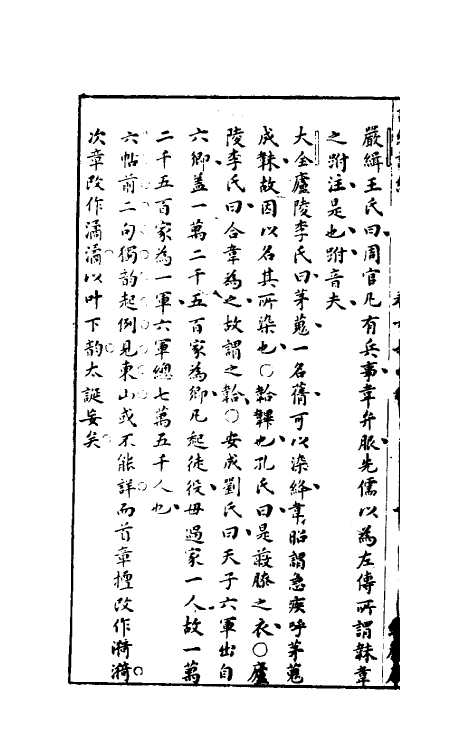 嚴緝王氏曰周官凡有兵事韋弁服先儒以為左傳所謂韎韋
之跗注是也跗音夫
大全廬陵李氏曰茅蒐一名蒨可以染絳韋昭謂急疾呼茅蒐
成韎故因以名其所染也○韐韠也孔氏曰是蔽膝之衣○廬
陵李氏曰合韋為之故謂之韐○安成劉氏曰天子六軍出自
六鄉盖一萬二千五百家為鄉凡起徒役毋過家一人故一萬
二千五百家為一軍六軍總七萬五千人也
六帖前二句獨韵起例見東山或不能詳而首章擅改作漪漪
次章改作潏潏以叶下韵太誕妄矣